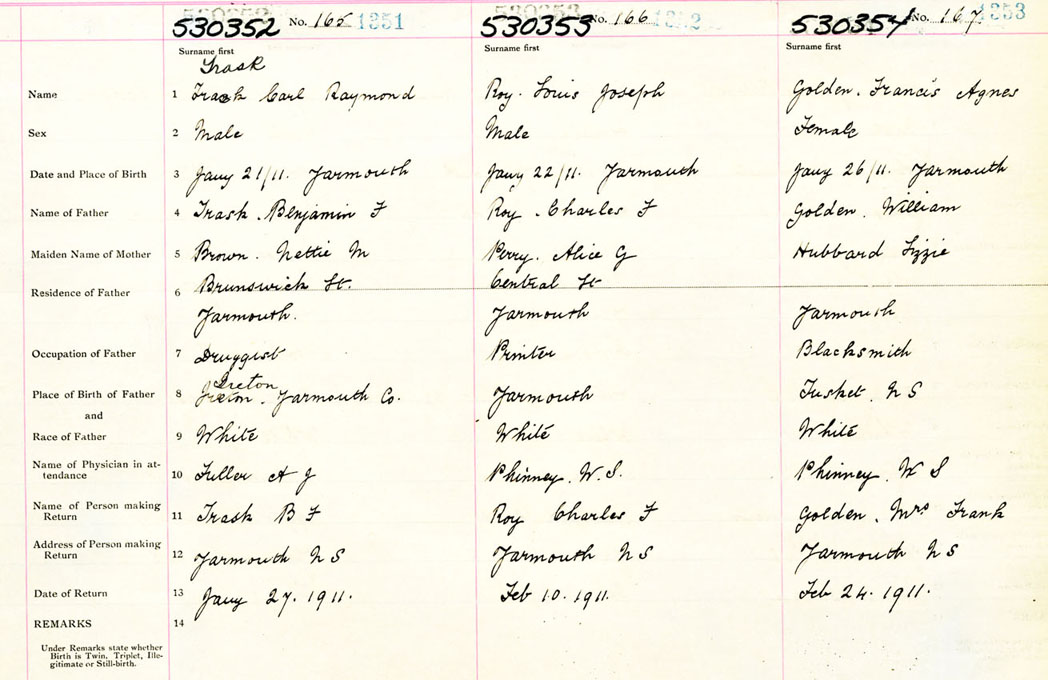 530352 No. 165 1351 530353 No. 166 1352 530354 No. 167 1353
Surname first Surname first Surname first
Trask
Name 1 Trask Carl Raymond Roy. Louis Joseph Golden. Francis Agnes
Sex 2 Male Male Female
Date and Place of Birth 3 Jany 21/11. Yarmouth Jany 22/11. Yarmouth Jany 26/11. Yarmouth
Name of Father 4 Trask. Benjamin F Roy. Charles F Golden. William
Maiden Name of Mother 5 Brown. Nettie M Perry. Alice G Hubbard Lizzie
Residence of Father 6 Brunswick St. Central St
Yarmouth. Yarmouth Yarmouth
Occupation of Father 7 Druggist Printer Blacksmith
Ireton
Place of Birth of Father 8 Yarmouth Co. Yarmouth Tusket. N S
and
Race of Father 9 White White White
Name of Physician in at-
tendance 10 Fuller A J Phinney. W. S. Phinney. W S
Name of Person making
Return 11 Trask B F Roy Charles F Golden. Mrs Frank
Address of Person making
Return 12 Yarmouth N S Yarmouth N S Yarmouth N S
Date of Return 13 Jany 27. 1911. Feb 10. 1911. Feb 24. 1911.
REMARKS 14
Under Remarks state whether
Birth is Twin, Triplet, Ille-
gitimate or Still-birth.